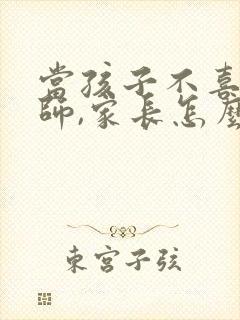 當孩子不喜
師,家長怎麼
東宮子弦